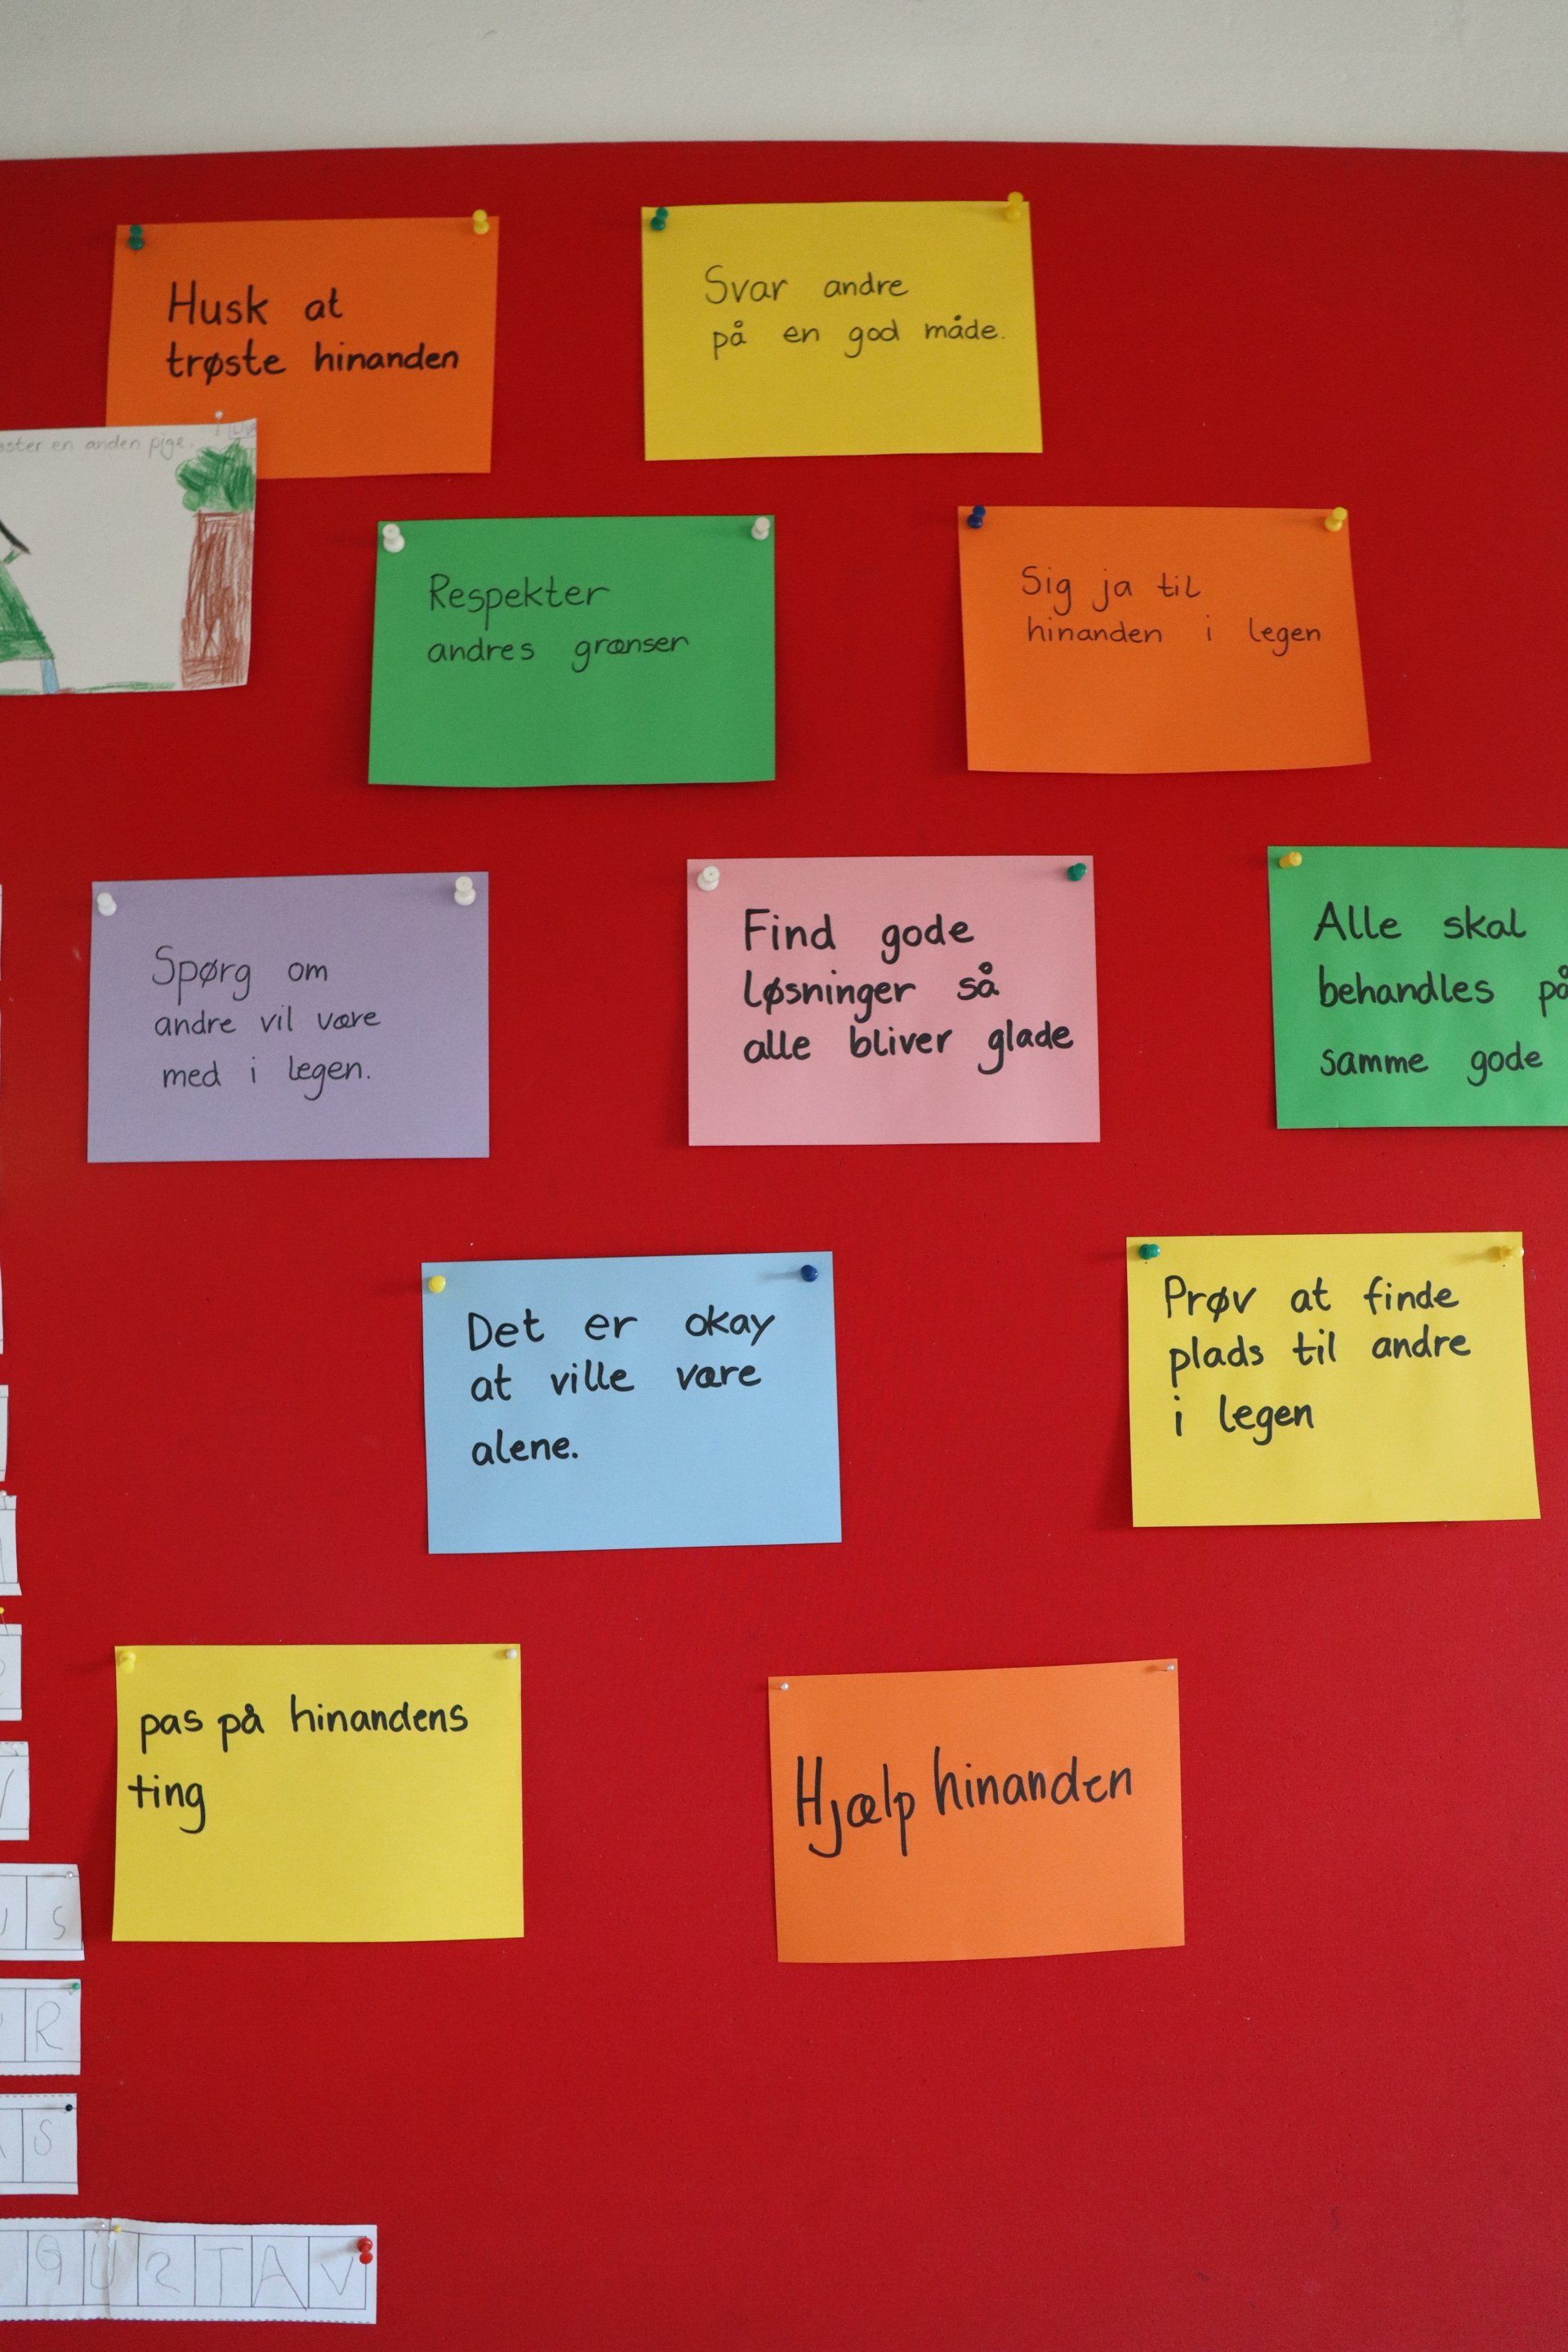 Husk at
trøste hinanden
Svar andre
på en god måde.
en anden pige.
Respekter
andres grænser
Sig ja til
hinanden i legen
Spørg om
andre vil være
med i legen.
Find gode
løsninger så
alle bliver glade
Alle skal
behandles på
samme gode
Det er okay
at ville være
alene.
Prøv at finde
plads til andre
i legen
pas på hinandens
ting
Hjælp hinanden
S
R
S
GUSTAV